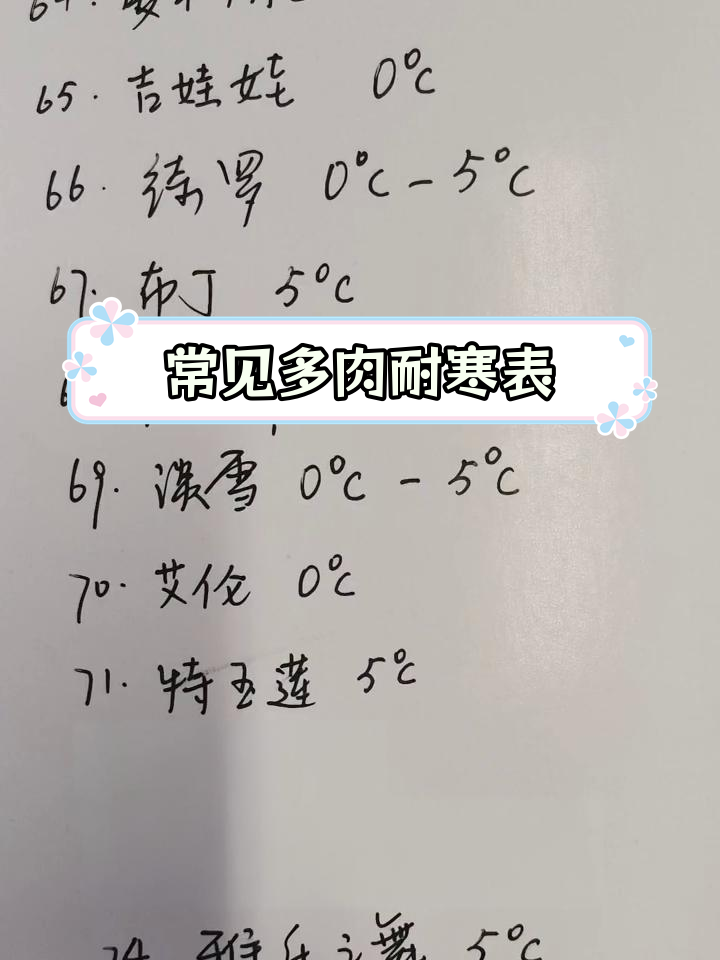 65. 吉娃娃 0°C
66. 绮罗 0°C-5°C
67. 布丁 5°C
常见多肉耐寒表
69. 淡雪 0°C-5°C
70. 艾伦 0°C
71. 特玉莲 5°C
74. 雅乐之舞 5°C